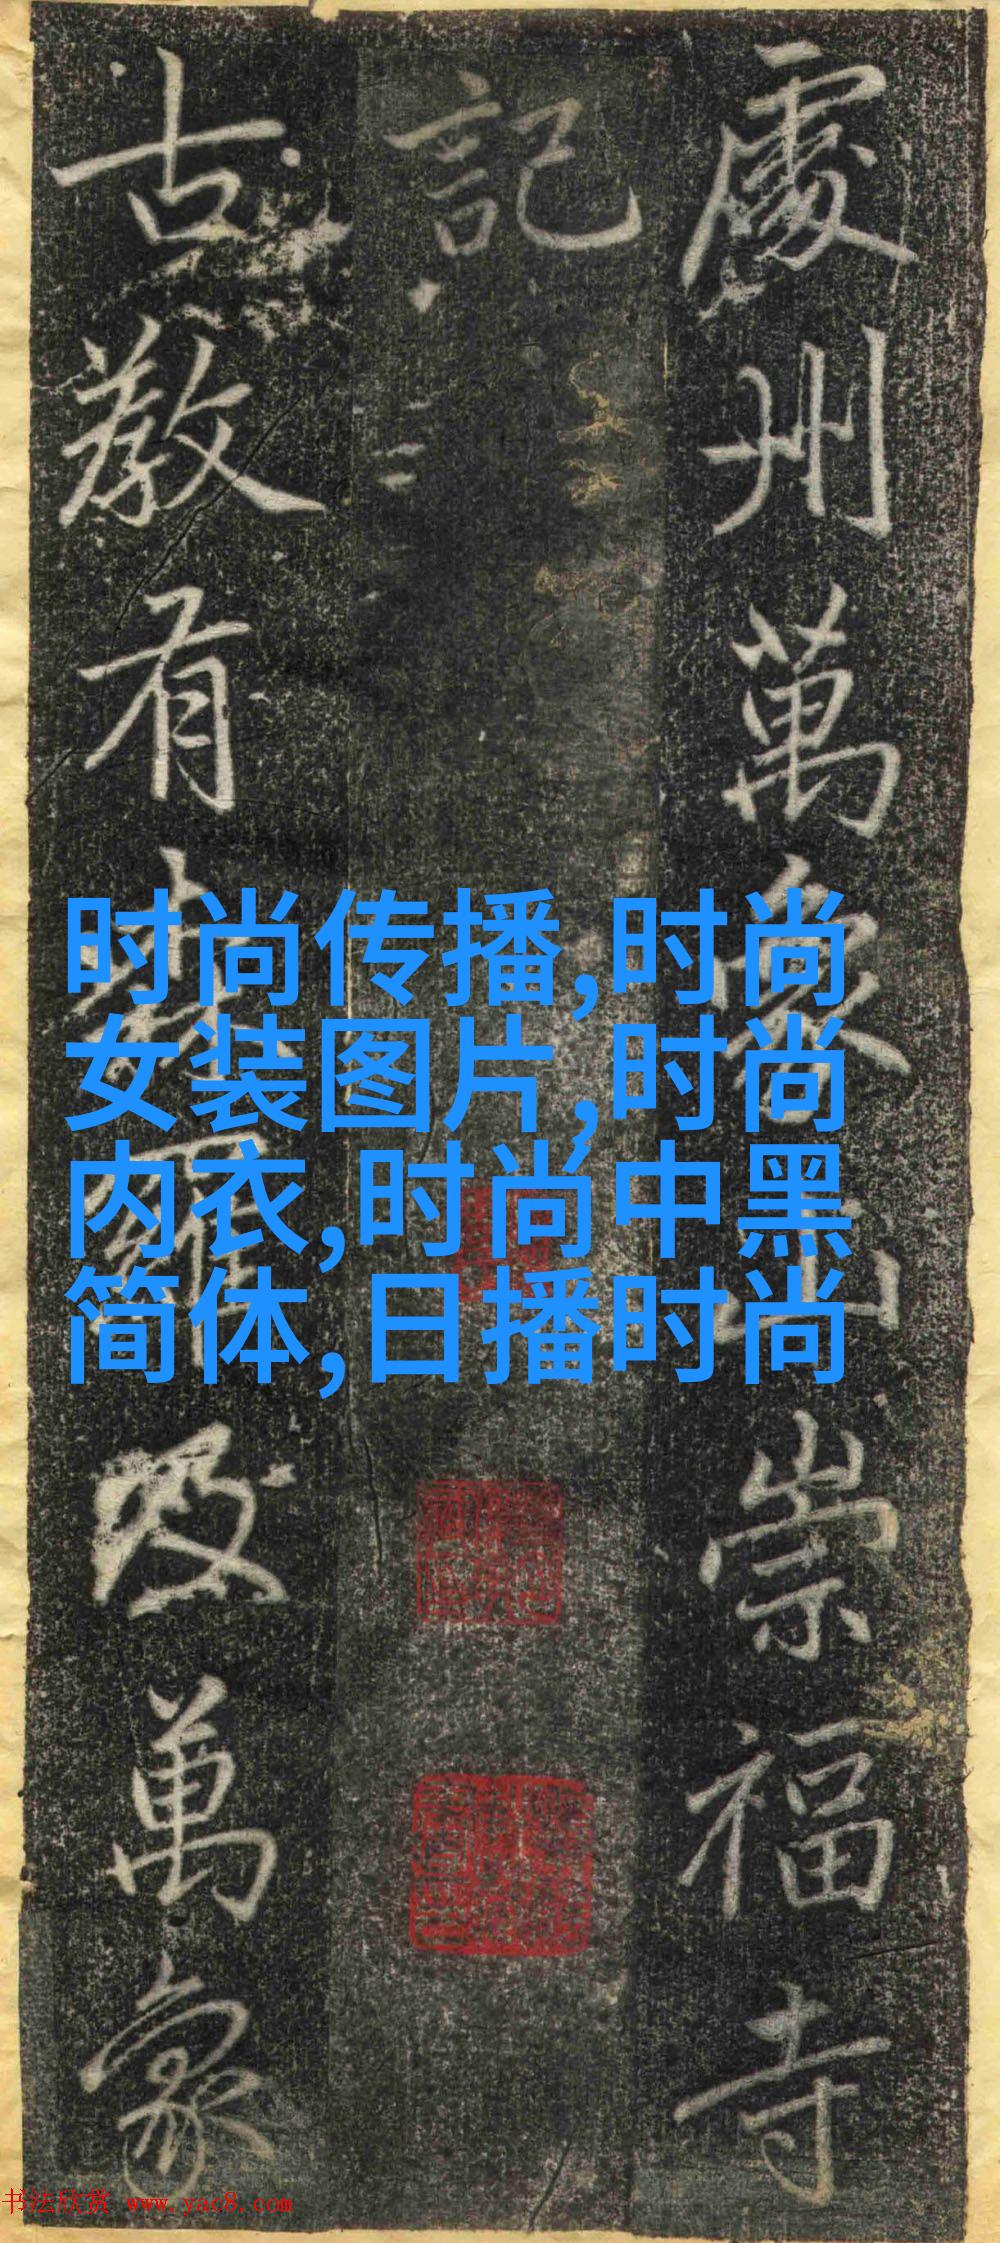 處州萬象山崇福寺
記
古教有及萬象
时尚传播,时尚
女装图片,时尚
内衣,时尚中黑
简体,日播时尚
书法欣赏 www.yac8.com